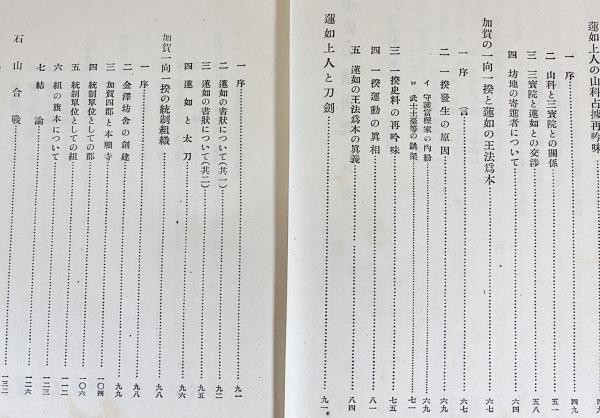 蓮如上人の山科占據再吟味
一 序……四九
二 山科と三寶院との關係……五一
三 三寶院と蓮如との交渉……五八
四 坊地の寄進者について……六四
加賀の一向一揆と蓮如の王法爲本……六七
一 序 言……六七
二 一揆發生の原因……六九
イ 守護富樫家の內紛……六九
ロ 武士土豪等の跳梁……七一
三 一揆史料の再吟味……七五
四 一揆運動の眞相……八一
五 蓮如の王法爲本の眞義……八四
蓮如上人と刀劍……九一
一 序……九一
二 蓮如の書狀について(其一)……九二
三 蓮如の書狀について(其二)……九五
四 蓮如と太刀……九六
加賀一向一揆の統制組織……九八
一 序……九八
二 金澤坊舍の創建……九九
三 加賀四郡と本願寺……九九
四 統制單位としての郡……一〇四
五 統制單位としての組……一〇六
六 組の旗本について……一一二
七 結 論……一二三
石山合戰……一二六
一三二